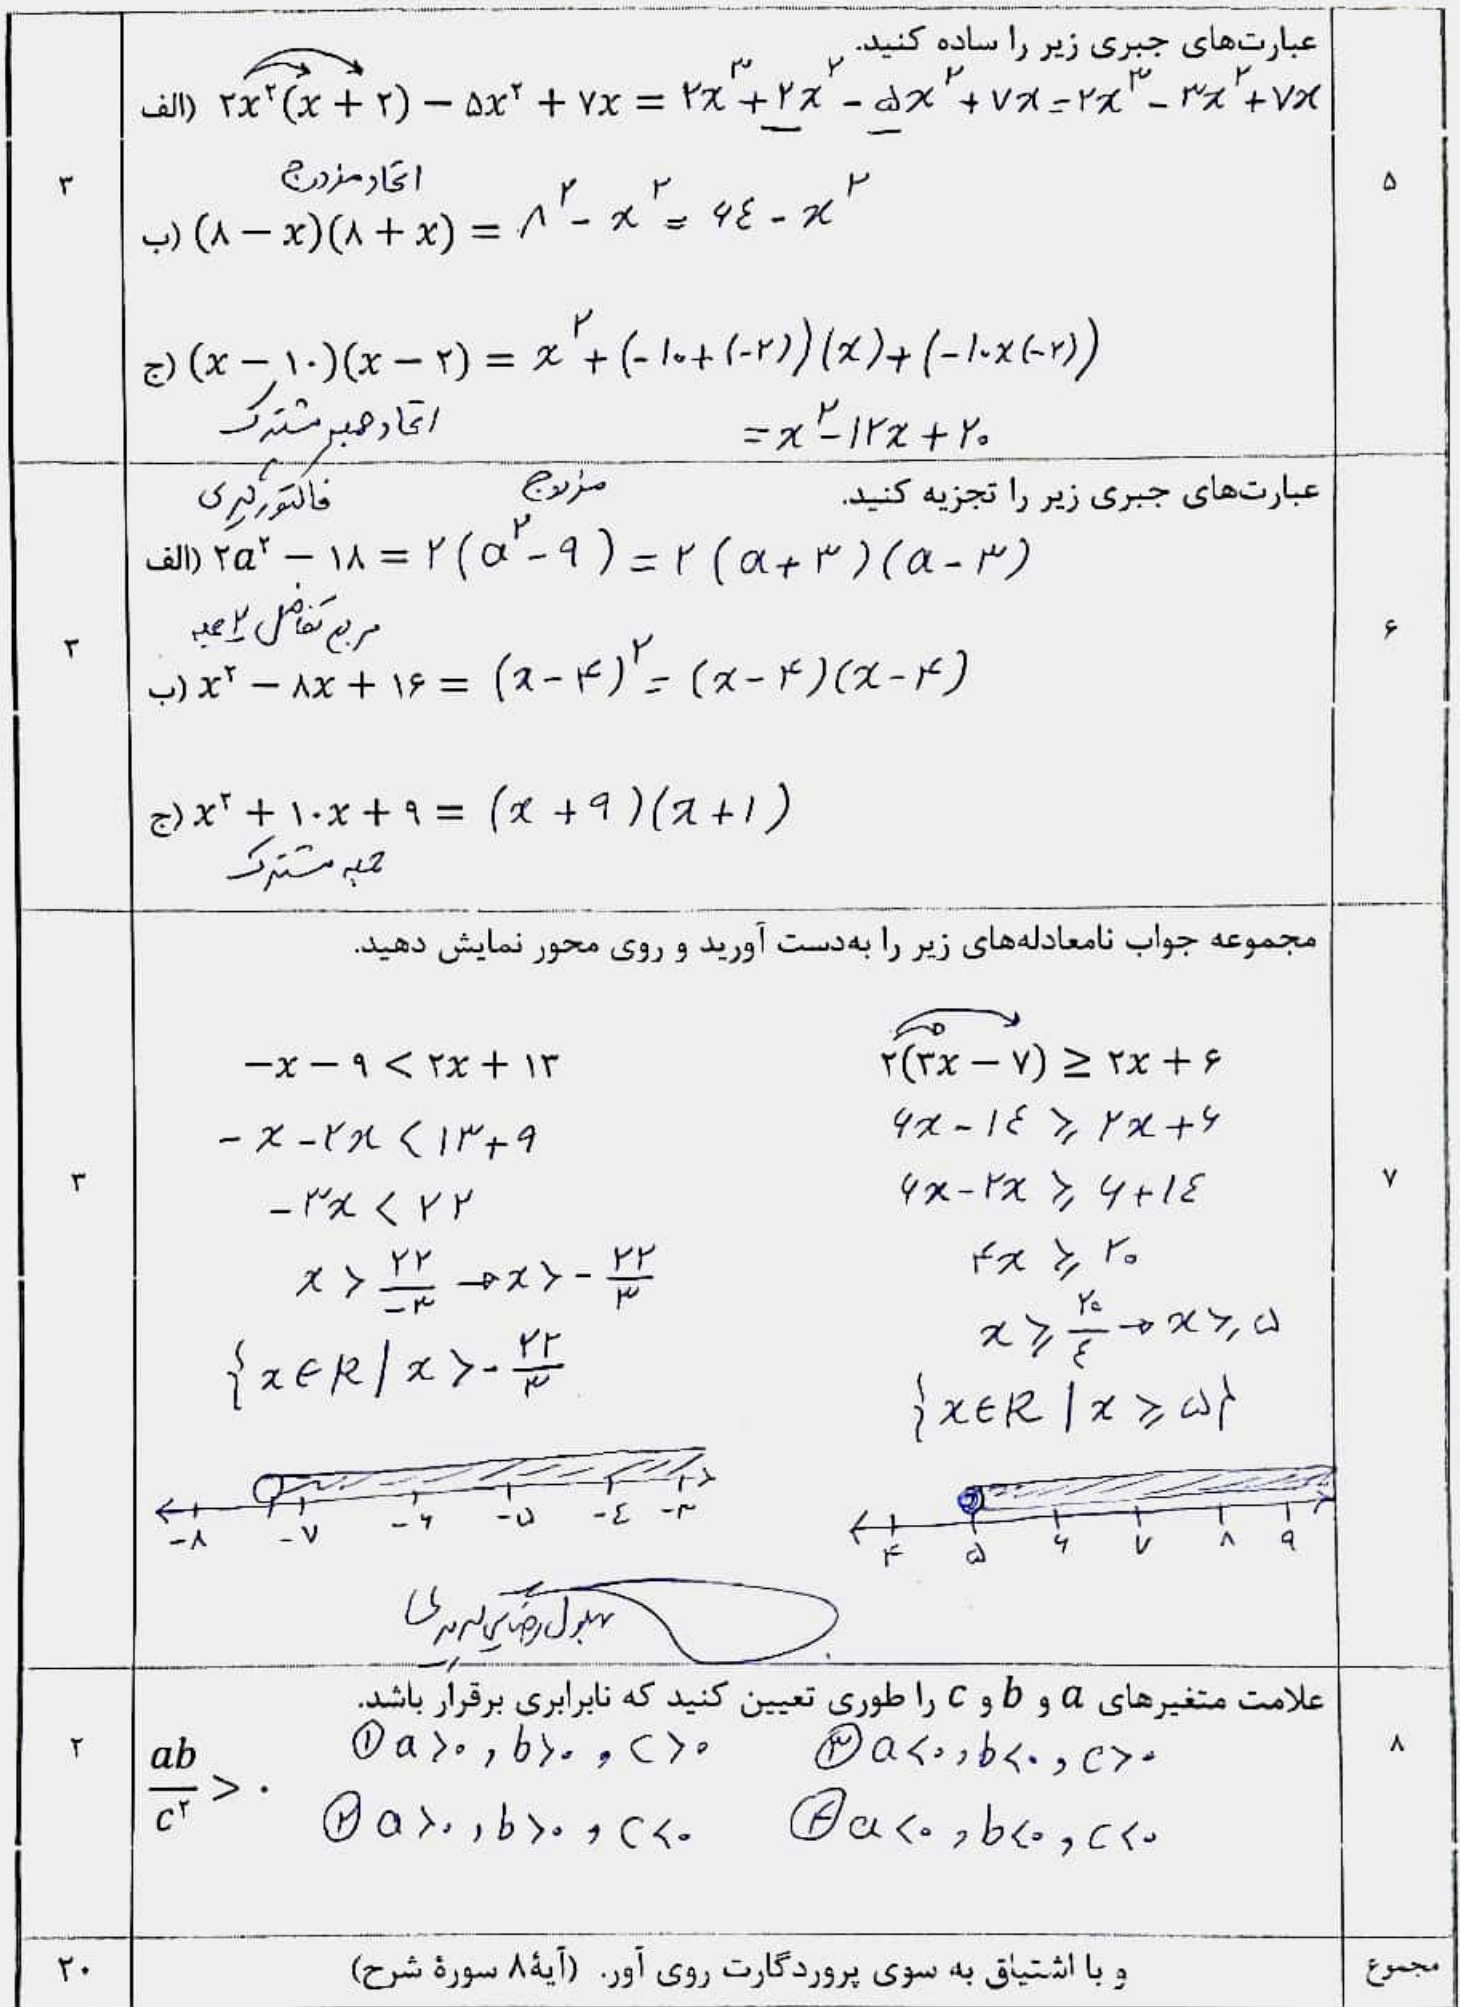 ۵
عبارت‌های جبری زیر را ساده کنید.
الف) ۲x^۲(x + ۲) − ۵x^۲ + ۷x = ۲x^۳ + ۲x^۲ − ۵x^۲ + ۷x = ۲x^۳ − ۳x^۲ + ۷x
اتحاد مزدوج
ب) (۸ − x)(۸ + x) = ۸^۲ − x^۲ = ۶۴ − x^۲
ج) (x − ۱۰)(x − ۲) = x^۲ + (−۱۰ + (−۲))(x) + (−۱۰ × (−۲))
اتحاد جمله مشترک
= x^۲ − ۱۲x + ۲۰
۳
۶
عبارت‌های جبری زیر را تجزیه کنید.
فاکتورگیری
مزدوج
الف) ۲a^۲ − ۱۸ = ۲(a^۲ − ۹) = ۲(a + ۳)(a − ۳)
مربع تفاضل ۲ جمله
ب) x^۲ − ۸x + ۱۶ = (x − ۴)^۲ = (x − ۴)(x − ۴)
ج) x^۲ + ۱۰x + ۹ = (x + ۹)(x + ۱)
جمله مشترک
۳
۷
مجموعه جواب نامعادله‌های زیر را به‌دست آورید و روی محور نمایش دهید.
۲(۳x − ۷) ≥ ۲x + ۶
۶x − ۱۴ ≥ ۲x + ۶
۶x − ۲x ≥ ۶ + ۱۴
۴x ≥ ۲۰
x ≥ ۲۰/۴ → x ≥ ۵
{x ∈ R | x ≥ ۵}
۴ ۵ ۶ ۷ ۸ ۹
−x − ۹ < ۲x + ۱۳
−x − ۲x < ۱۳ + ۹
−۳x < ۲۲
x > ۲۲/−۳ → x > −۲۲/۳
{x ∈ R | x > −۲۲/۳
−۸ −۷ −۶ −۵ −۴ −۳
۳
۸
علامت متغیرهای a و b و c را طوری تعیین کنید که نابرابری برقرار باشد.
ab/c^۲ > ۰
① a > ۰ , b > ۰ , c > ۰
③ a < ۰ , b < ۰ , c > ۰
② a > ۰ , b > ۰ , c < ۰
④ a < ۰ , b < ۰ , c < ۰
۲
مجموع
و با اشتیاق به سوی پروردگارت روی آور. (آیهٔ ۸ سورهٔ شرح)
۲۰